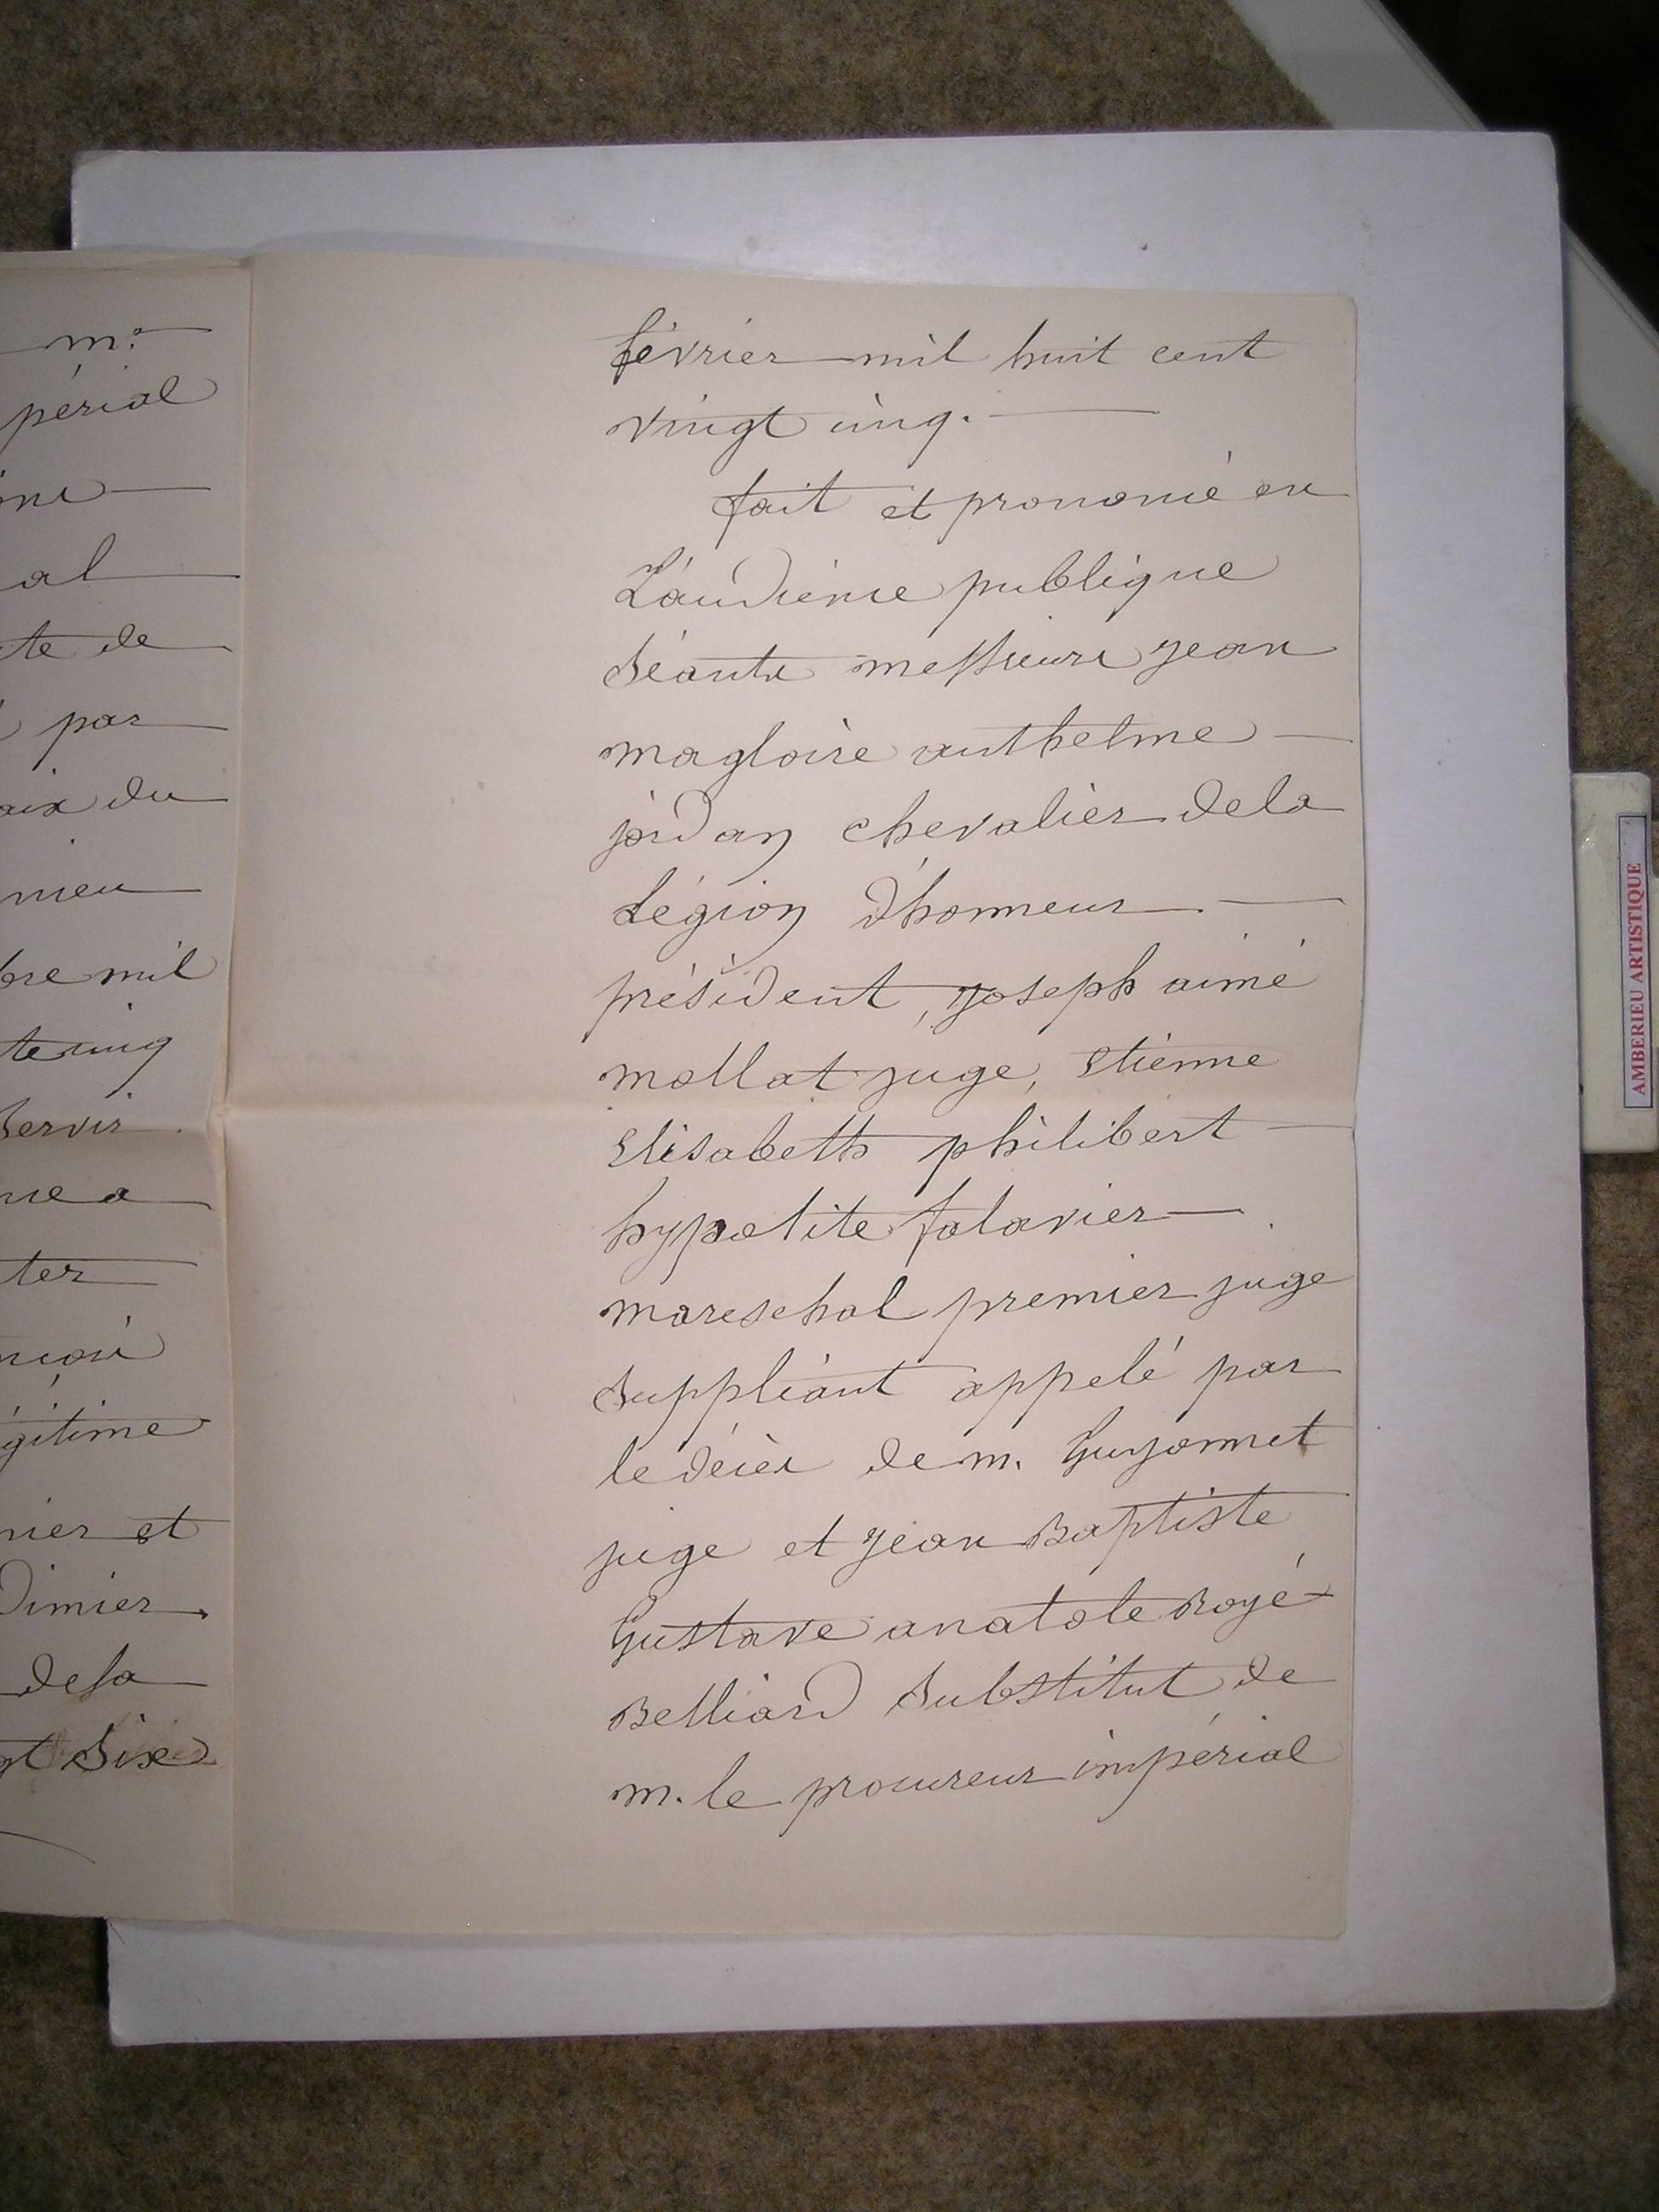 m.e
périal
ine
al
te de
par
aix du
nieu
bre mil
te cinq
servir.
ue a
ter
nçois
gitime
nier et
Dimier.
de sa
gt Six
février mil huit cent
vingt cinq.
fait et prononcé en
L'audience publique
séante messieurs jean
magloire anthelme
jordan chevalier dela
Légion d'honneur
président, joseph aimé
mollat juge, Etienne
Elisabeth philibert
hypolite falavier
mareschal premier juge
suppléant appelé par
le décès de m. Guyonnet
juge et jean Baptiste
Gustave anatole Royé
Belliard Substitut de
m. le procureur impérial
AMBERIEU ARTISTIQUE